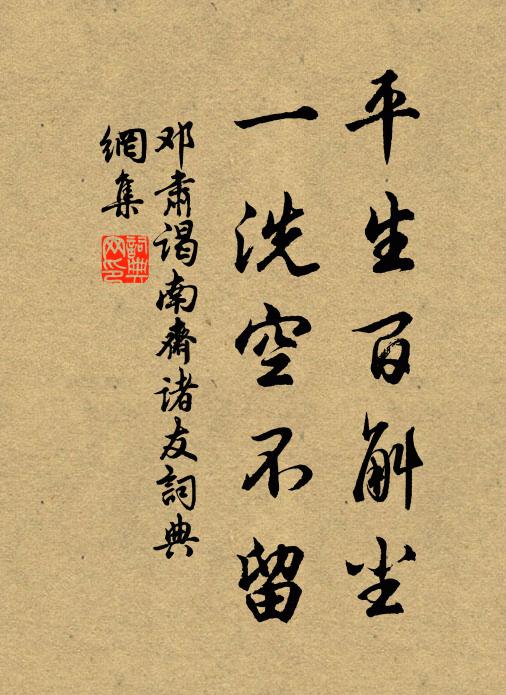 平生百斛尘
一洗空不留
邓肃谒南齋诸友詞典
網集
詞典
网印